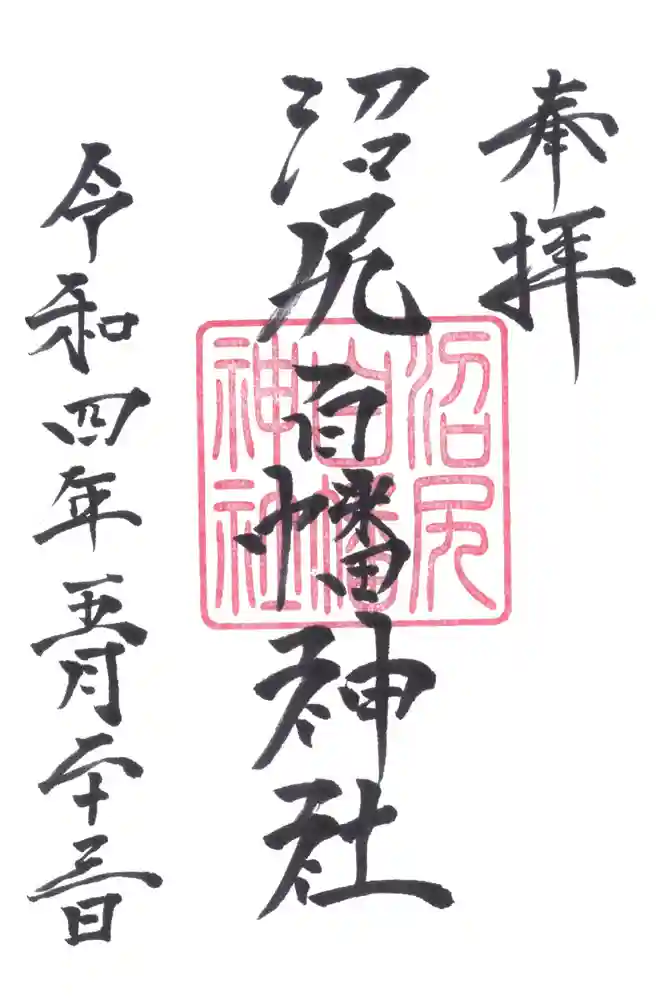 奉拝
沼尻白幡神社
沼尻
白幡
神社
令和四年五月二十三日